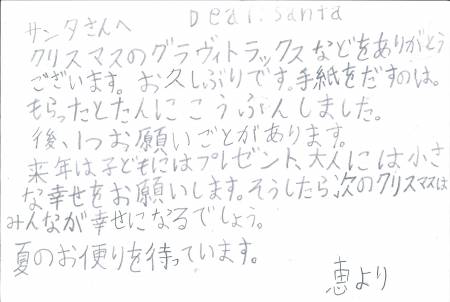 サンタさんへ Dear. Santa
クリスマスのグラヴィトラックスなどをありがとう
ございます。お久しぶりです。手紙をだすのは。
もらったとたんにこうふんしました。
後、1つお願いごとがあります。
来年は子どもにはプレゼント、大人には小さ
な幸せをお願いします。そうしたら次のクリスマスは
みんなが幸せになるでしょう。
夏のお便りを待っています。
恵より